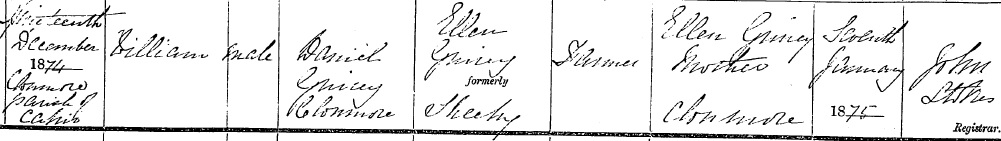 Nineteenth
December
1874
Clonmore
parish of
Cahir
William
Male
Daniel
Quirey
Clonmore
Ellen
Quirey
formerly
Sheehy
Farmer
Ellen Quirey
Mother
Clonmore
Seventh
January
1875
John
Stokes
Registrar.